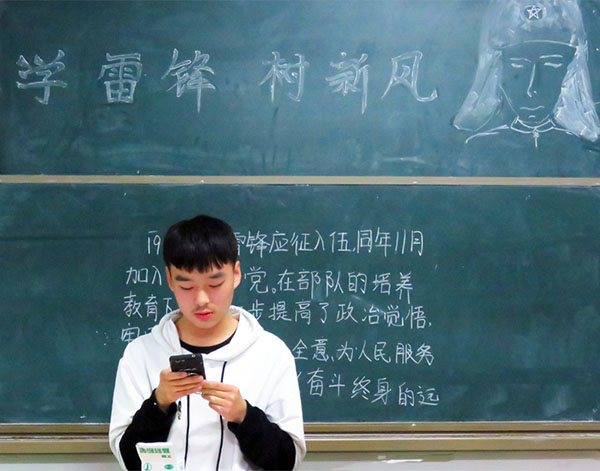 学雷锋 树新风
19 雷锋应征入伍,同年11月
加入 党。在部队的培养
教育下 步提高了政治觉悟,
全意,为人民服务
奋斗终身的远